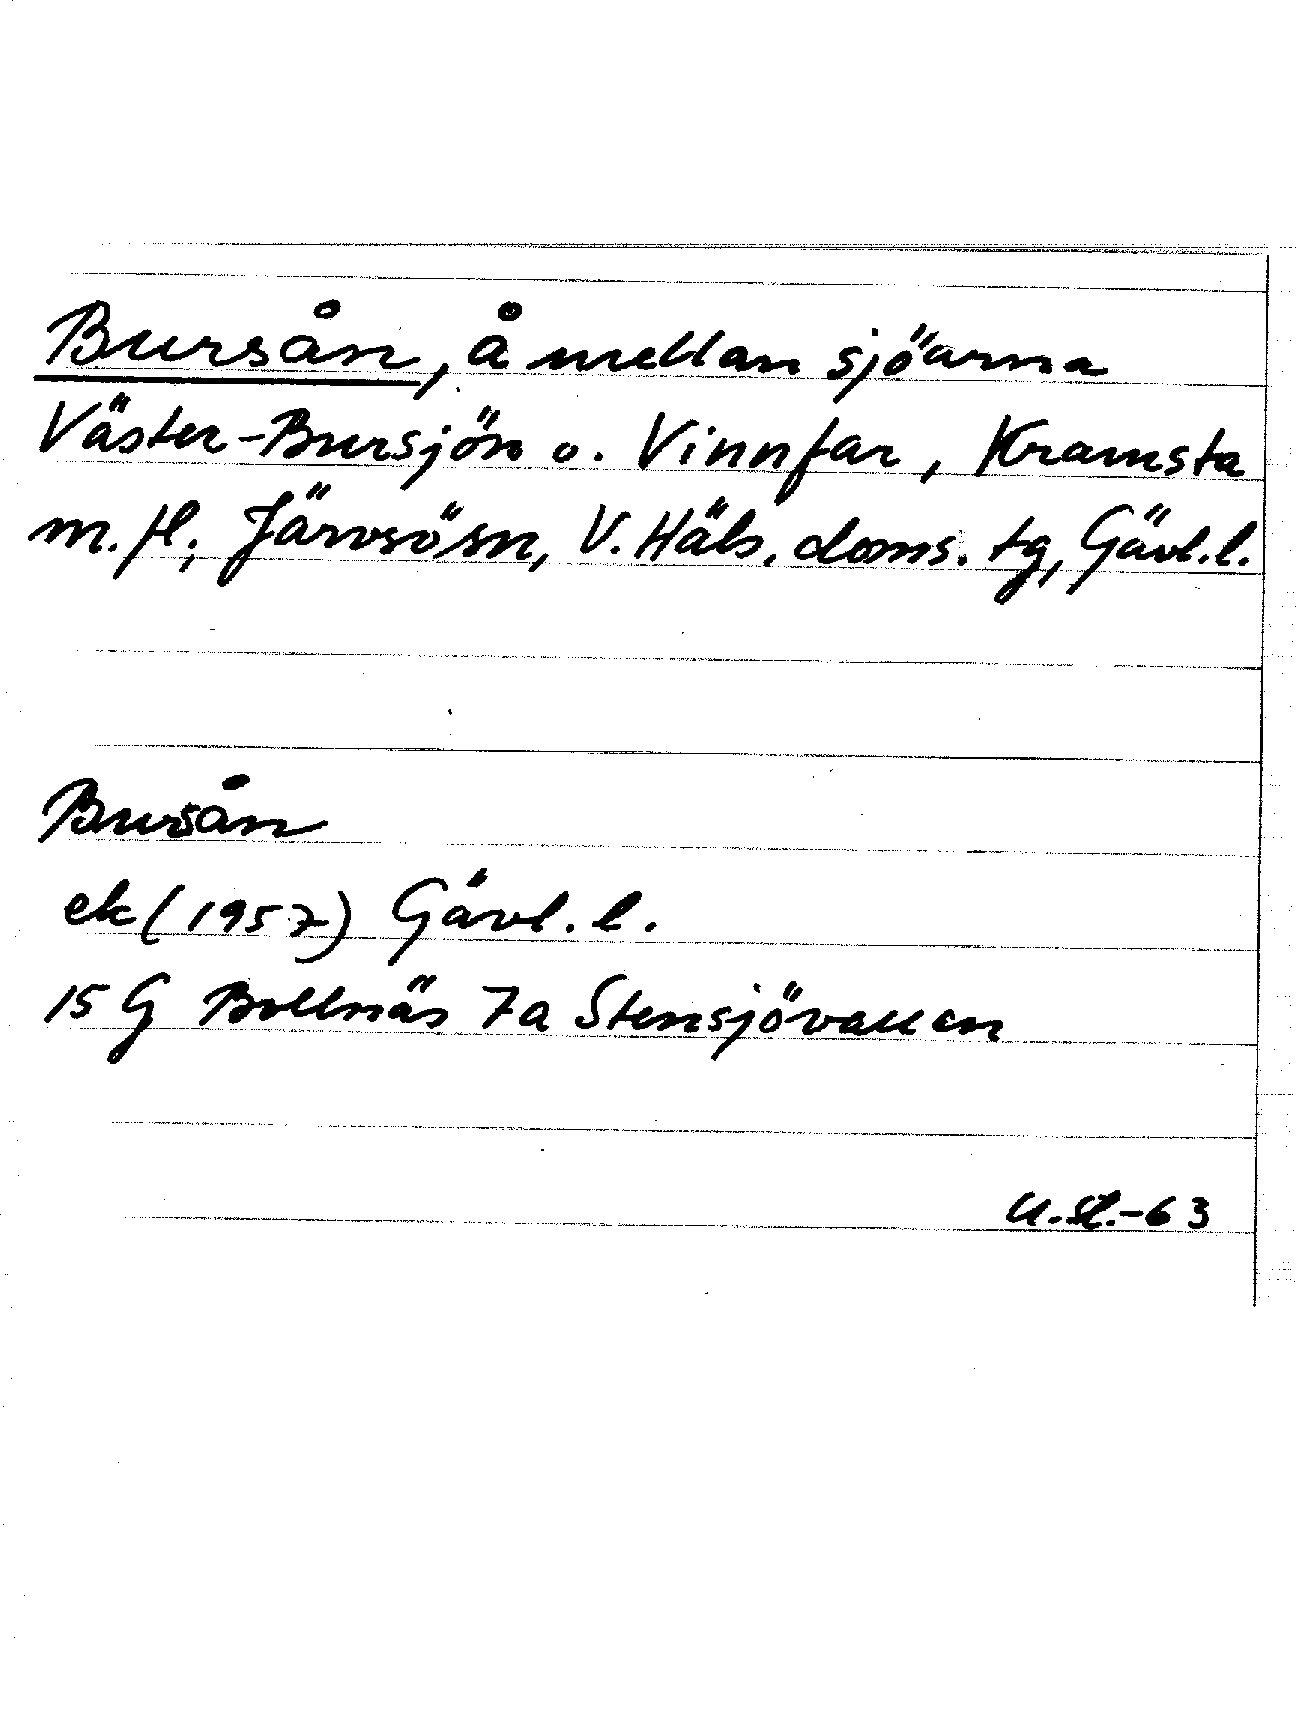 Bursån, å mellan sjöarna
Väster-Bursjön o. Vinnfar, Kramsta
m. fl., Järvsö sn, V. Häls. doms. tg, Gävl. l.
Bursån
ek (1957) Gävl. l.
15 G Bollnäs 7a Stensjövallen
U. St. -63